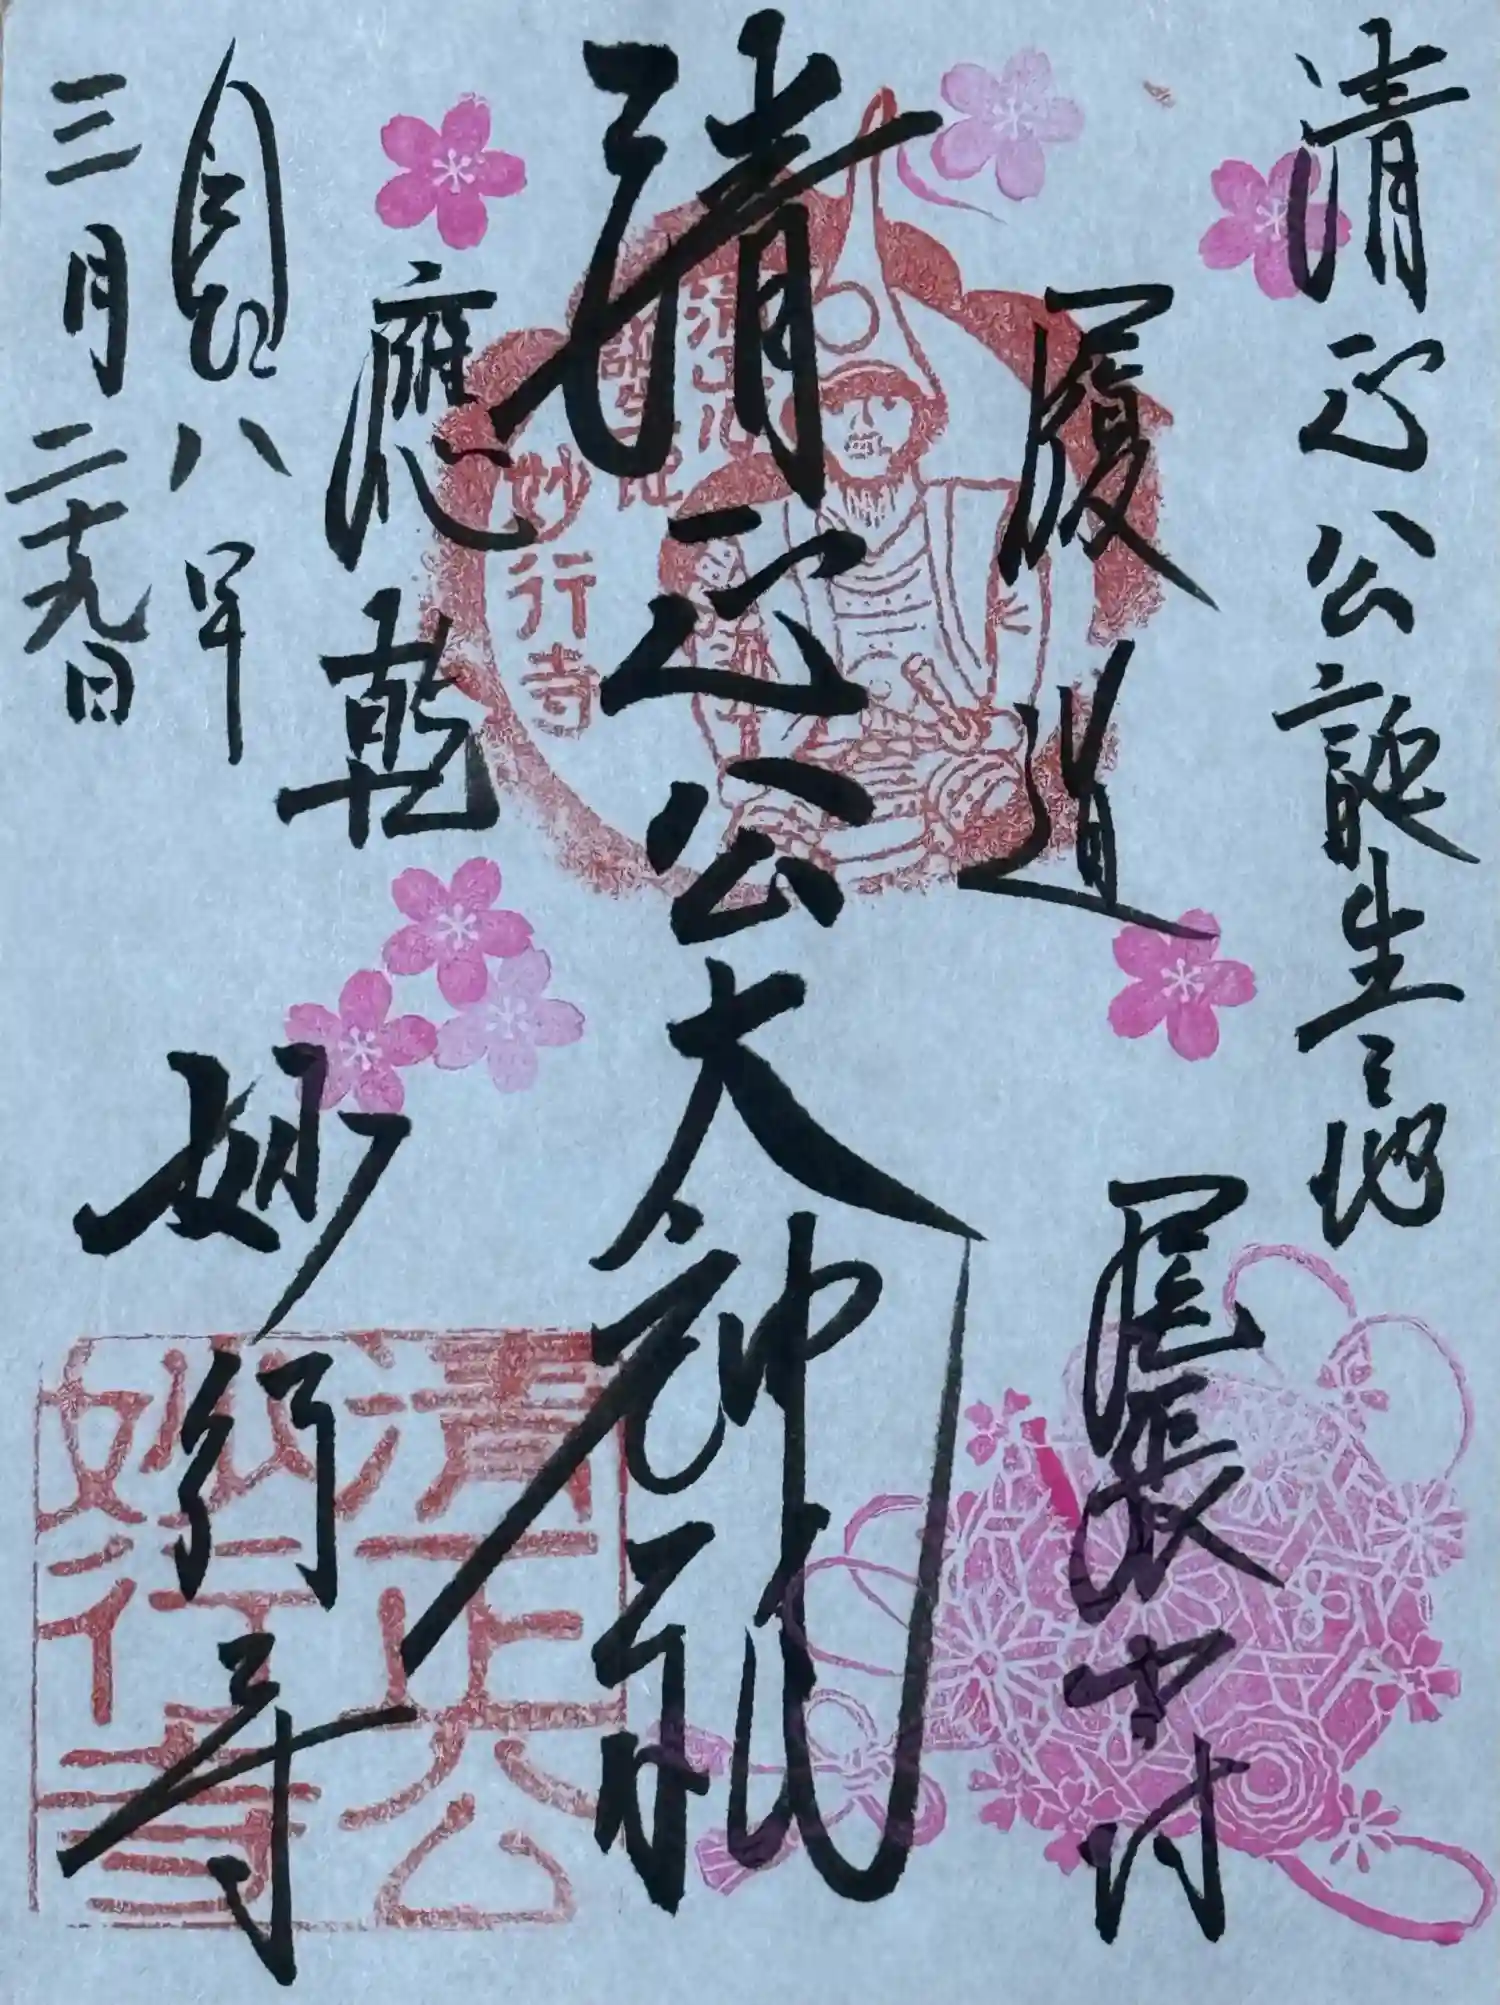 清正公誕生之地
履道
尾張中村
清正公大神
應乾
妙行寺
八年
三月二十九日
清正公
誕生地
妙行寺
清正公
妙行寺